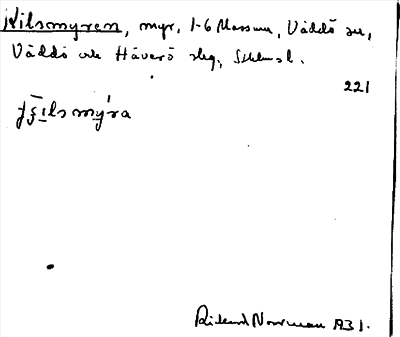 Kilsmyren, myr, 1-6 Massum, Väddö sn,
Väddö och Häverö skg, Sthlmsl.
221
Rikard Norrman 1931.